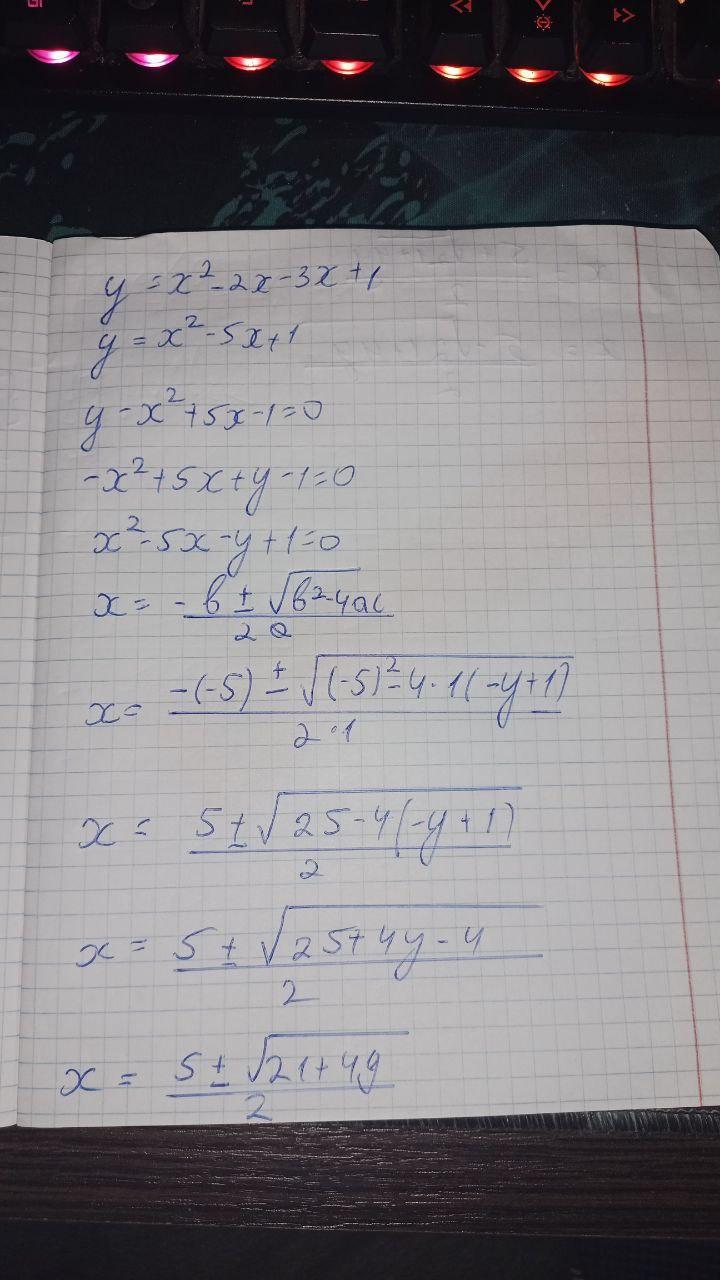 y = x² - 2x - 3x + 1
y = x² - 5x + 1
y - x² + 5x - 1 = 0
-x² + 5x + y - 1 = 0
x² - 5x - y + 1 = 0
x = (-b ± √(b² - 4ac)) / 2a
x = (-(-5) ± √((-5)² - 4 · 1(-y + 1))) / 2 · 1
x = (5 ± √(25 - 4(-y + 1))) / 2
x = (5 ± √(25 + 4y - 4)) / 2
x = (5 ± √(21 + 4y)) / 2